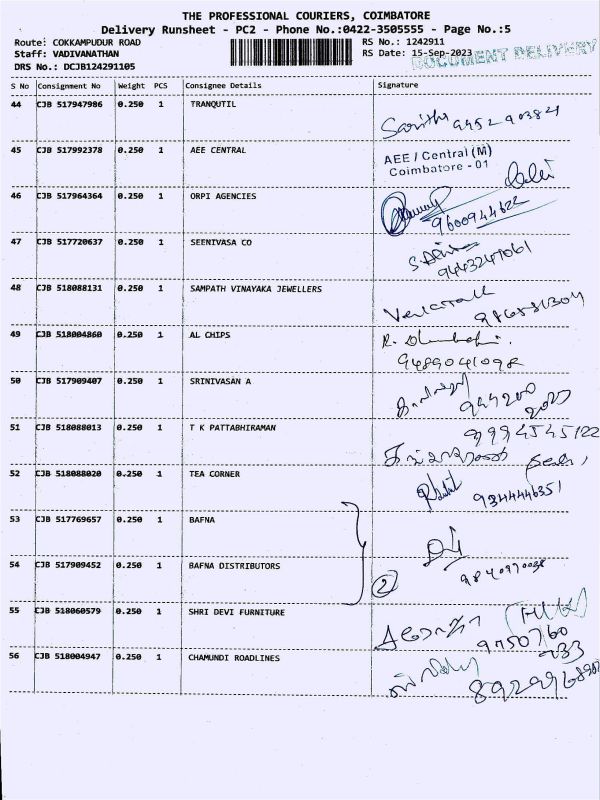 THE PROFESSIONAL COURIERS, COIMBATORE
Delivery Runsheet - PC2 - Phone No.:0422-3505555 - Page No.:5
Route: COKKAMPUDUR ROAD RS No.: 1242911
Staff: VADIVANATHAN RS Date: 15-Sep-2023 DOCUMENT DELIVERY
DRS No.: DCJB124291105
S No Consignment No Weight PCS Consignee Details Signature
44 CJB 517947986 0.250 1 TRANQUTIL
45 CJB 517992378 0.250 1 AEE CENTRAL AEE / Central (M)
Coimbatore - 01
46 CJB 517964364 0.250 1 ORPI AGENCIES
9600944622
47 CJB 517720637 0.250 1 SEENIVASA CO
9443247061
48 CJB 518088131 0.250 1 SAMPATH VINAYAKA JEWELLERS
49 CJB 518004860 0.250 1 AL CHIPS
9489041098
50 CJB 517909407 0.250 1 SRINIVASAN A
51 CJB 518088013 0.250 1 T K PATTABHIRAMAN 9994545122
52 CJB 518088020 0.250 1 TEA CORNER
9344446351
53 CJB 517769657 0.250 1 BAFNA
54 CJB 517909452 0.250 1 BAFNA DISTRIBUTORS
2
55 CJB 518060579 0.250 1 SHRI DEVI FURNITURE
9750760
733
56 CJB 518004947 0.250 1 CHAMUNDI ROADLINES